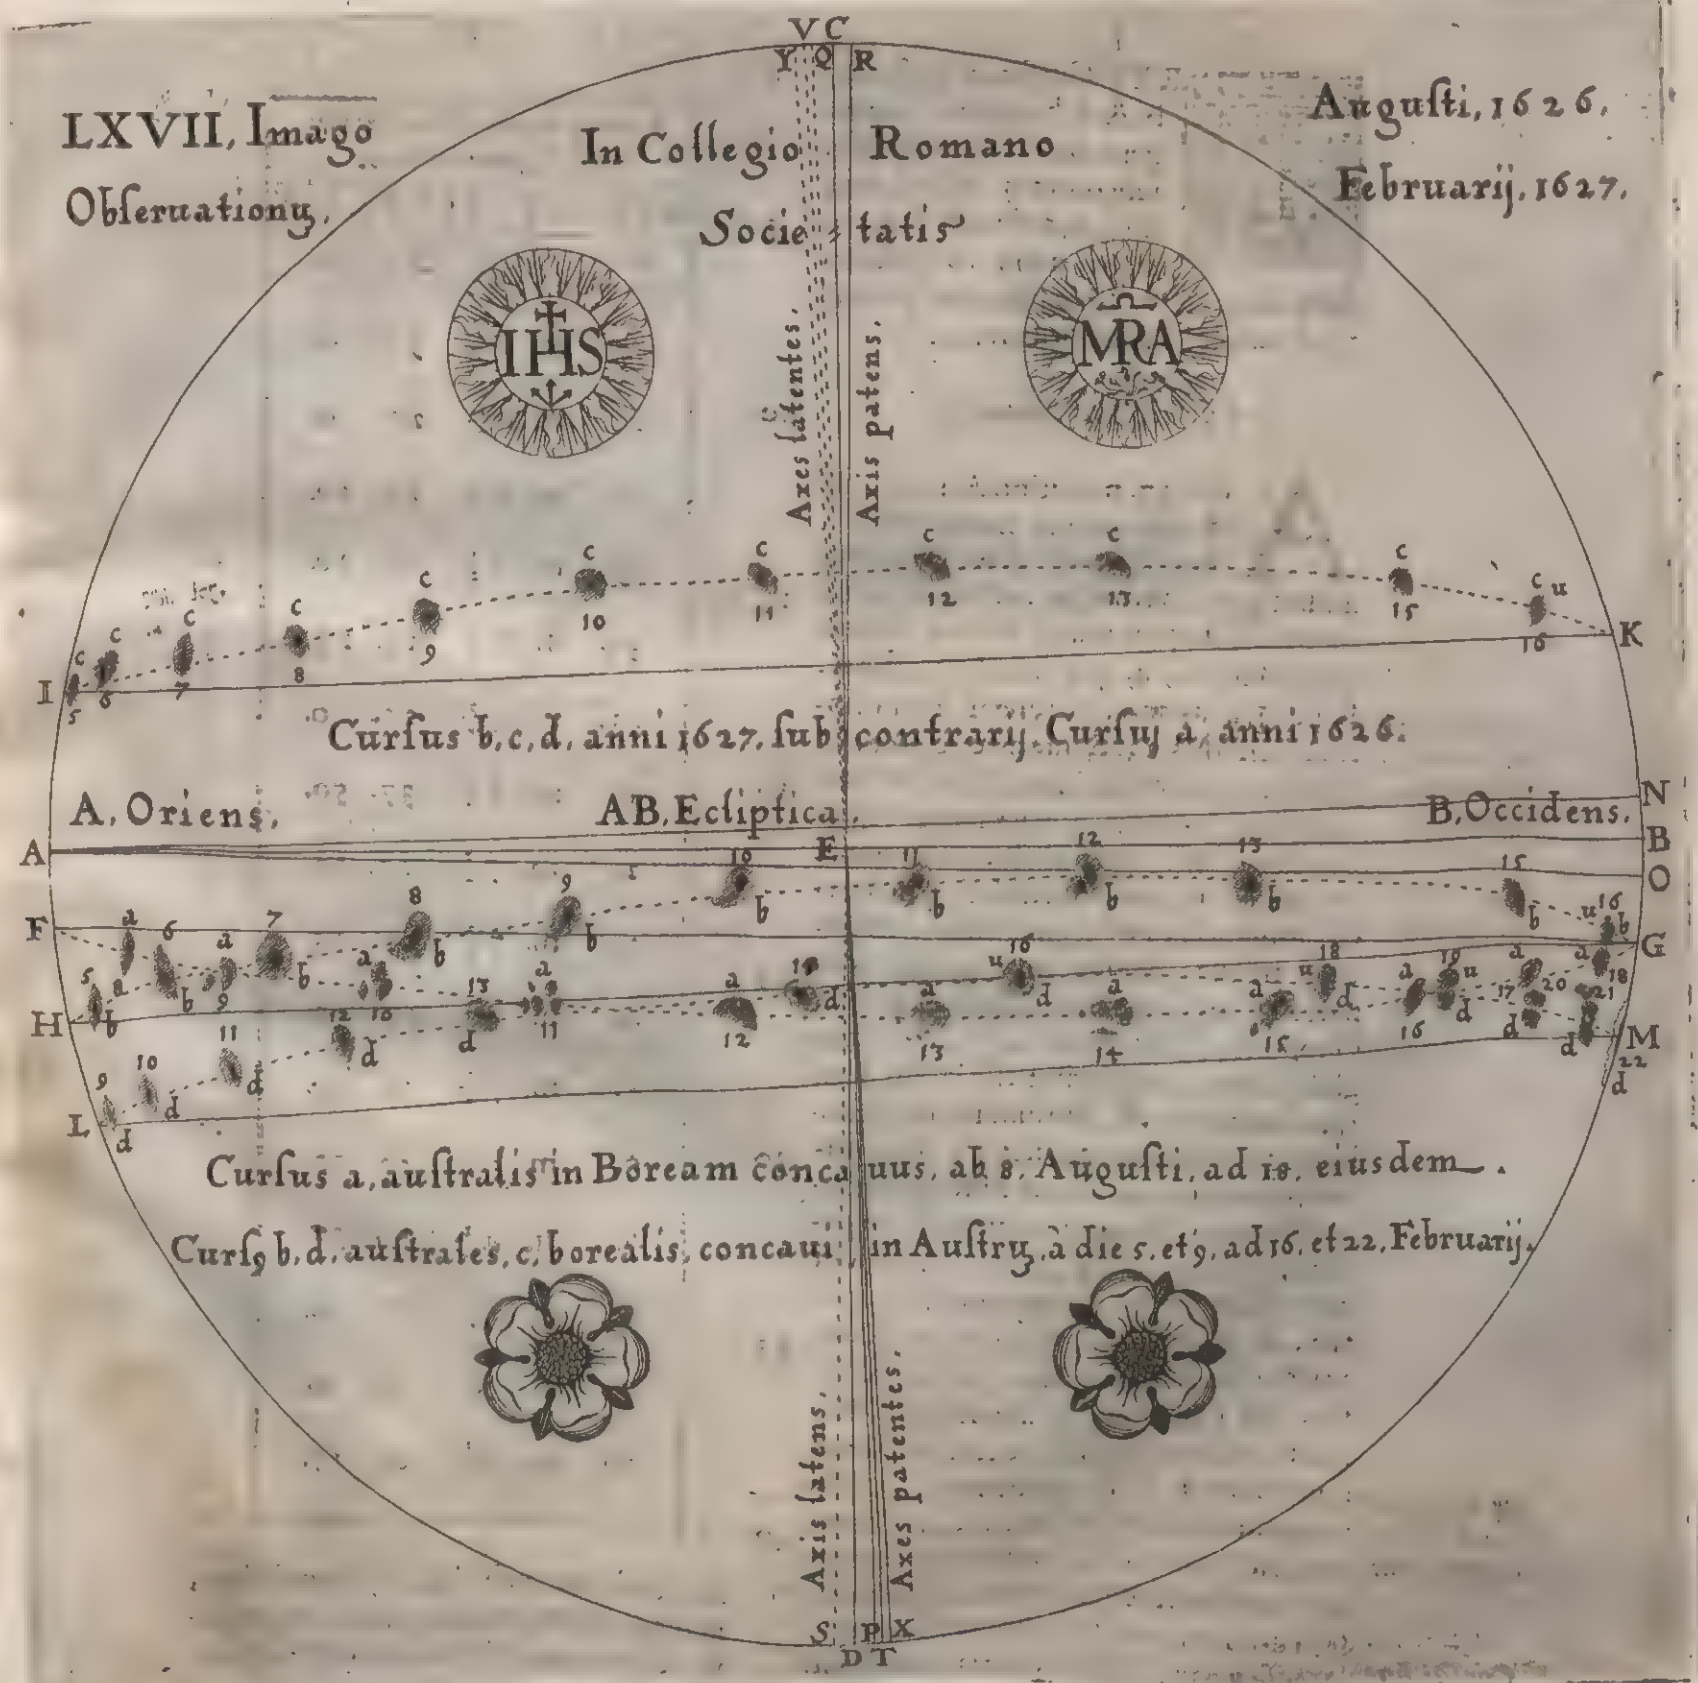 V C
Y Q R
LXVII, Imago
Obſeruationũ.
In Collegio Romano
Socie tatis
Auguſti, 1626.
Februarij, 1627.
IHS
MRA
Axes latentes.
Axis patens.
c c c c c c c c c c c u
I 5 6 7 8 9 10 11 12 13 15 16 K
Curſus b, c, d, anni 1627. ſub contrarij Curſuj a, anni 1626.
A, Oriens. AB, Ecliptica. B, Occidens.
N
A E B
O
8 9 10 11 12 13 15 u 16
b b b b b b b b
F a 6 7 a a a G
5 a b 9 b 10 13 11 d
H b
16 u d 18 u d 19 u d
a 12 a 13 a 14 a 15 a 16 a 17 20 a 18 21
9 10 11 12 d d M
L d d d d 22 d
Curſus a, auſtralis in Boream conca uus, ab 8. Auguſti, ad 18. eiusdem.
Curſꝯ b, d, auſtrales, c, borealis, concaui in Auſtrũ, à die 5. et 9, ad 16. et 22. Februarij.
Axis latens.
Axes patentes.
S P X
D T